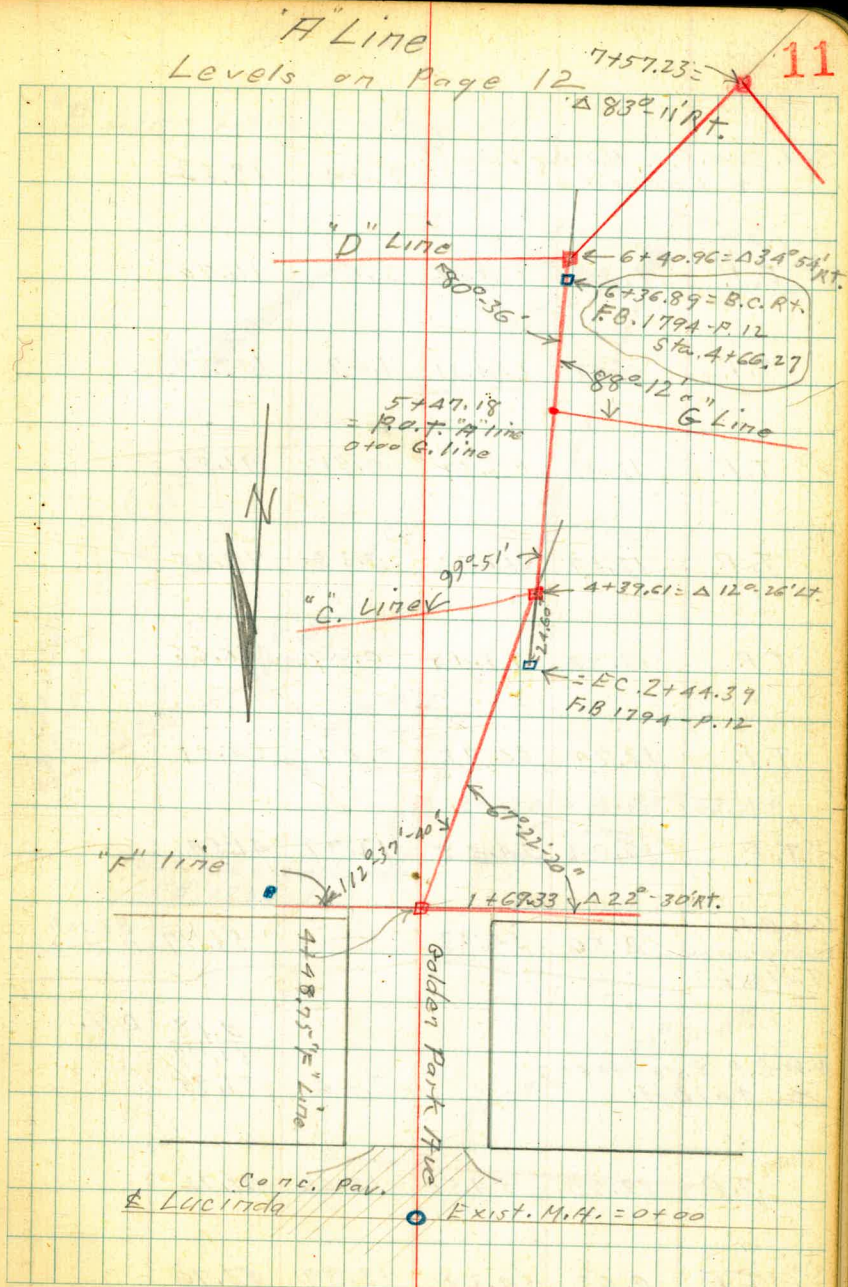 "A" Line
11
Levels on Page 12
7+57.23=
Δ 83°-11' Rt.
"D" Line
6+40.96=Δ34°54' Rt.
80°-36'
6+36.89=B.C. Rt.
F.B. 1794-P.12
Sta. 4+66.27
88°-12'
"G" Line
5+47.18
= P.O.T. "A" line
0+00 G. line
N
99°-51'
"C". Line
4+39.61= Δ 12°-26' Lt.
24.60
= EC. 2+44.39
F.B 1794-P.12
"F" line
112°-37'-40"
67°-22'-20"
1+69.33 Δ22°-30' Rt.
4+48.75 "F" Line
Golden Park Ave
Conc. Pav.
℄ Lucinda
Exist. M.H. = 0+00